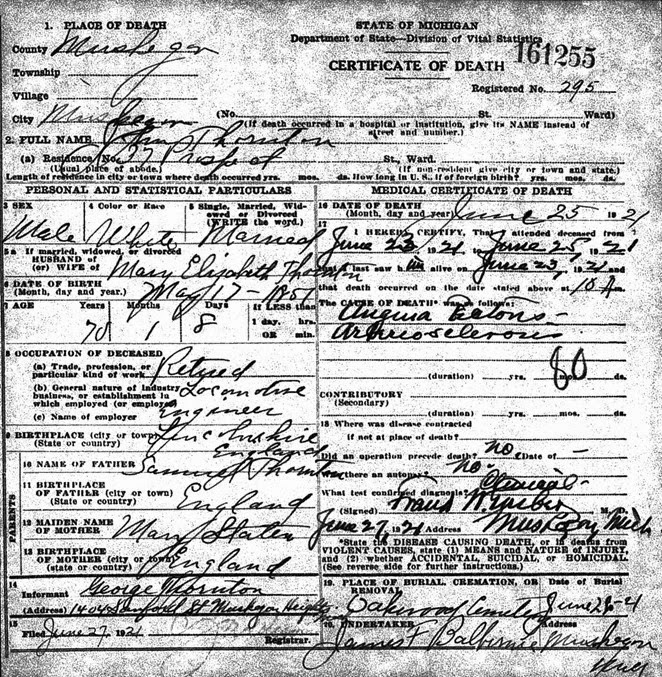 1. PLACE OF DEATH
County Muskegon
Township
Village
City Muskegon
STATE OF MICHIGAN
Department of State—Division of Vital Statistics
161255
CERTIFICATE OF DEATH
Registered No. 295
(No. St. Ward)
(If death occurred in a hospital or institution, give its NAME instead of street and number.)
2. FULL NAME John Thornton
(a) Residence No. 37 St., Ward.
(Usual place of abode.) (If non-resident give city or town and state.)
Length of residence in city or town where death occurred yrs. mos. ds. How long in U. S., if of foreign birth? yrs. mos. ds.
PERSONAL AND STATISTICAL PARTICULARS
3 SEX 4 Color or Race 5 Single, Married, Widowed or Divorced (WRITE the word.)
Male White Married
5a If married, widowed, or divorced
HUSBAND of
(or) WIFE of Mary Elizabeth Thornton
6 DATE OF BIRTH
(Month, day and year.) May 17 - 1851
7 AGE Years Months Days If LESS than
1 day, hrs.
OR min.
70 1 8
8 OCCUPATION OF DECEASED
(a) Trade, profession, or
particular kind of work Retired
(b) General nature of industry
business, or establishment in
which employed (or employer) Locomotive
Engineer
(c) Name of employer
9 BIRTHPLACE (city or town) Lincolnshire
(State or country) England
10 NAME OF FATHER Samuel Thornton
11 BIRTHPLACE
OF FATHER (city or town)
(State or country) England
PARENTS
12 MAIDEN NAME
OF MOTHER Mary Slaten
13 BIRTHPLACE
OF MOTHER (city or town)
(state or country) England
14
Informant George Thornton
(Address) 1404 Sanford St Muskegon Heights
15
Filed June 27, 1921
Registrar.
MEDICAL CERTIFICATE OF DEATH
16 DATE OF DEATH
(Month, day and year) June 25 1921
17
I HEREBY CERTIFY, That I attended deceased from
June 23, 1921, to June 25, 1921
I last saw him alive on June 23, 1921 and
that death occurred on the date stated above at 10 A.
The CAUSE OF DEATH* was as follows:
Angina Pectoris -
Arteriosclerosis
80
(duration) yrs. mos. ds.
CONTRIBUTORY
(Secondary)
(duration) yrs. mos. ds.
18 Where was disease contracted
if not at place of death?
Did an operation precede death? no Date of —
Was there an autopsy? no.
What test confirmed diagnosis? Clinical
(Signed) M. D.
June 27, 1921 Address Muskegon Mich
*State the DISEASE CAUSING DEATH, or in deaths from
VIOLENT CAUSES, state (1) MEANS and NATURE OF INJURY,
and (2) whether ACCIDENTAL, SUICIDAL, or HOMICIDAL.
(See reverse side for further instructions.)
19. PLACE OF BURIAL, CREMATION, OR REMOVAL Date of Burial
Oakwood Cemetery
20. UNDERTAKER Address
James F Balbirnie Muskegon